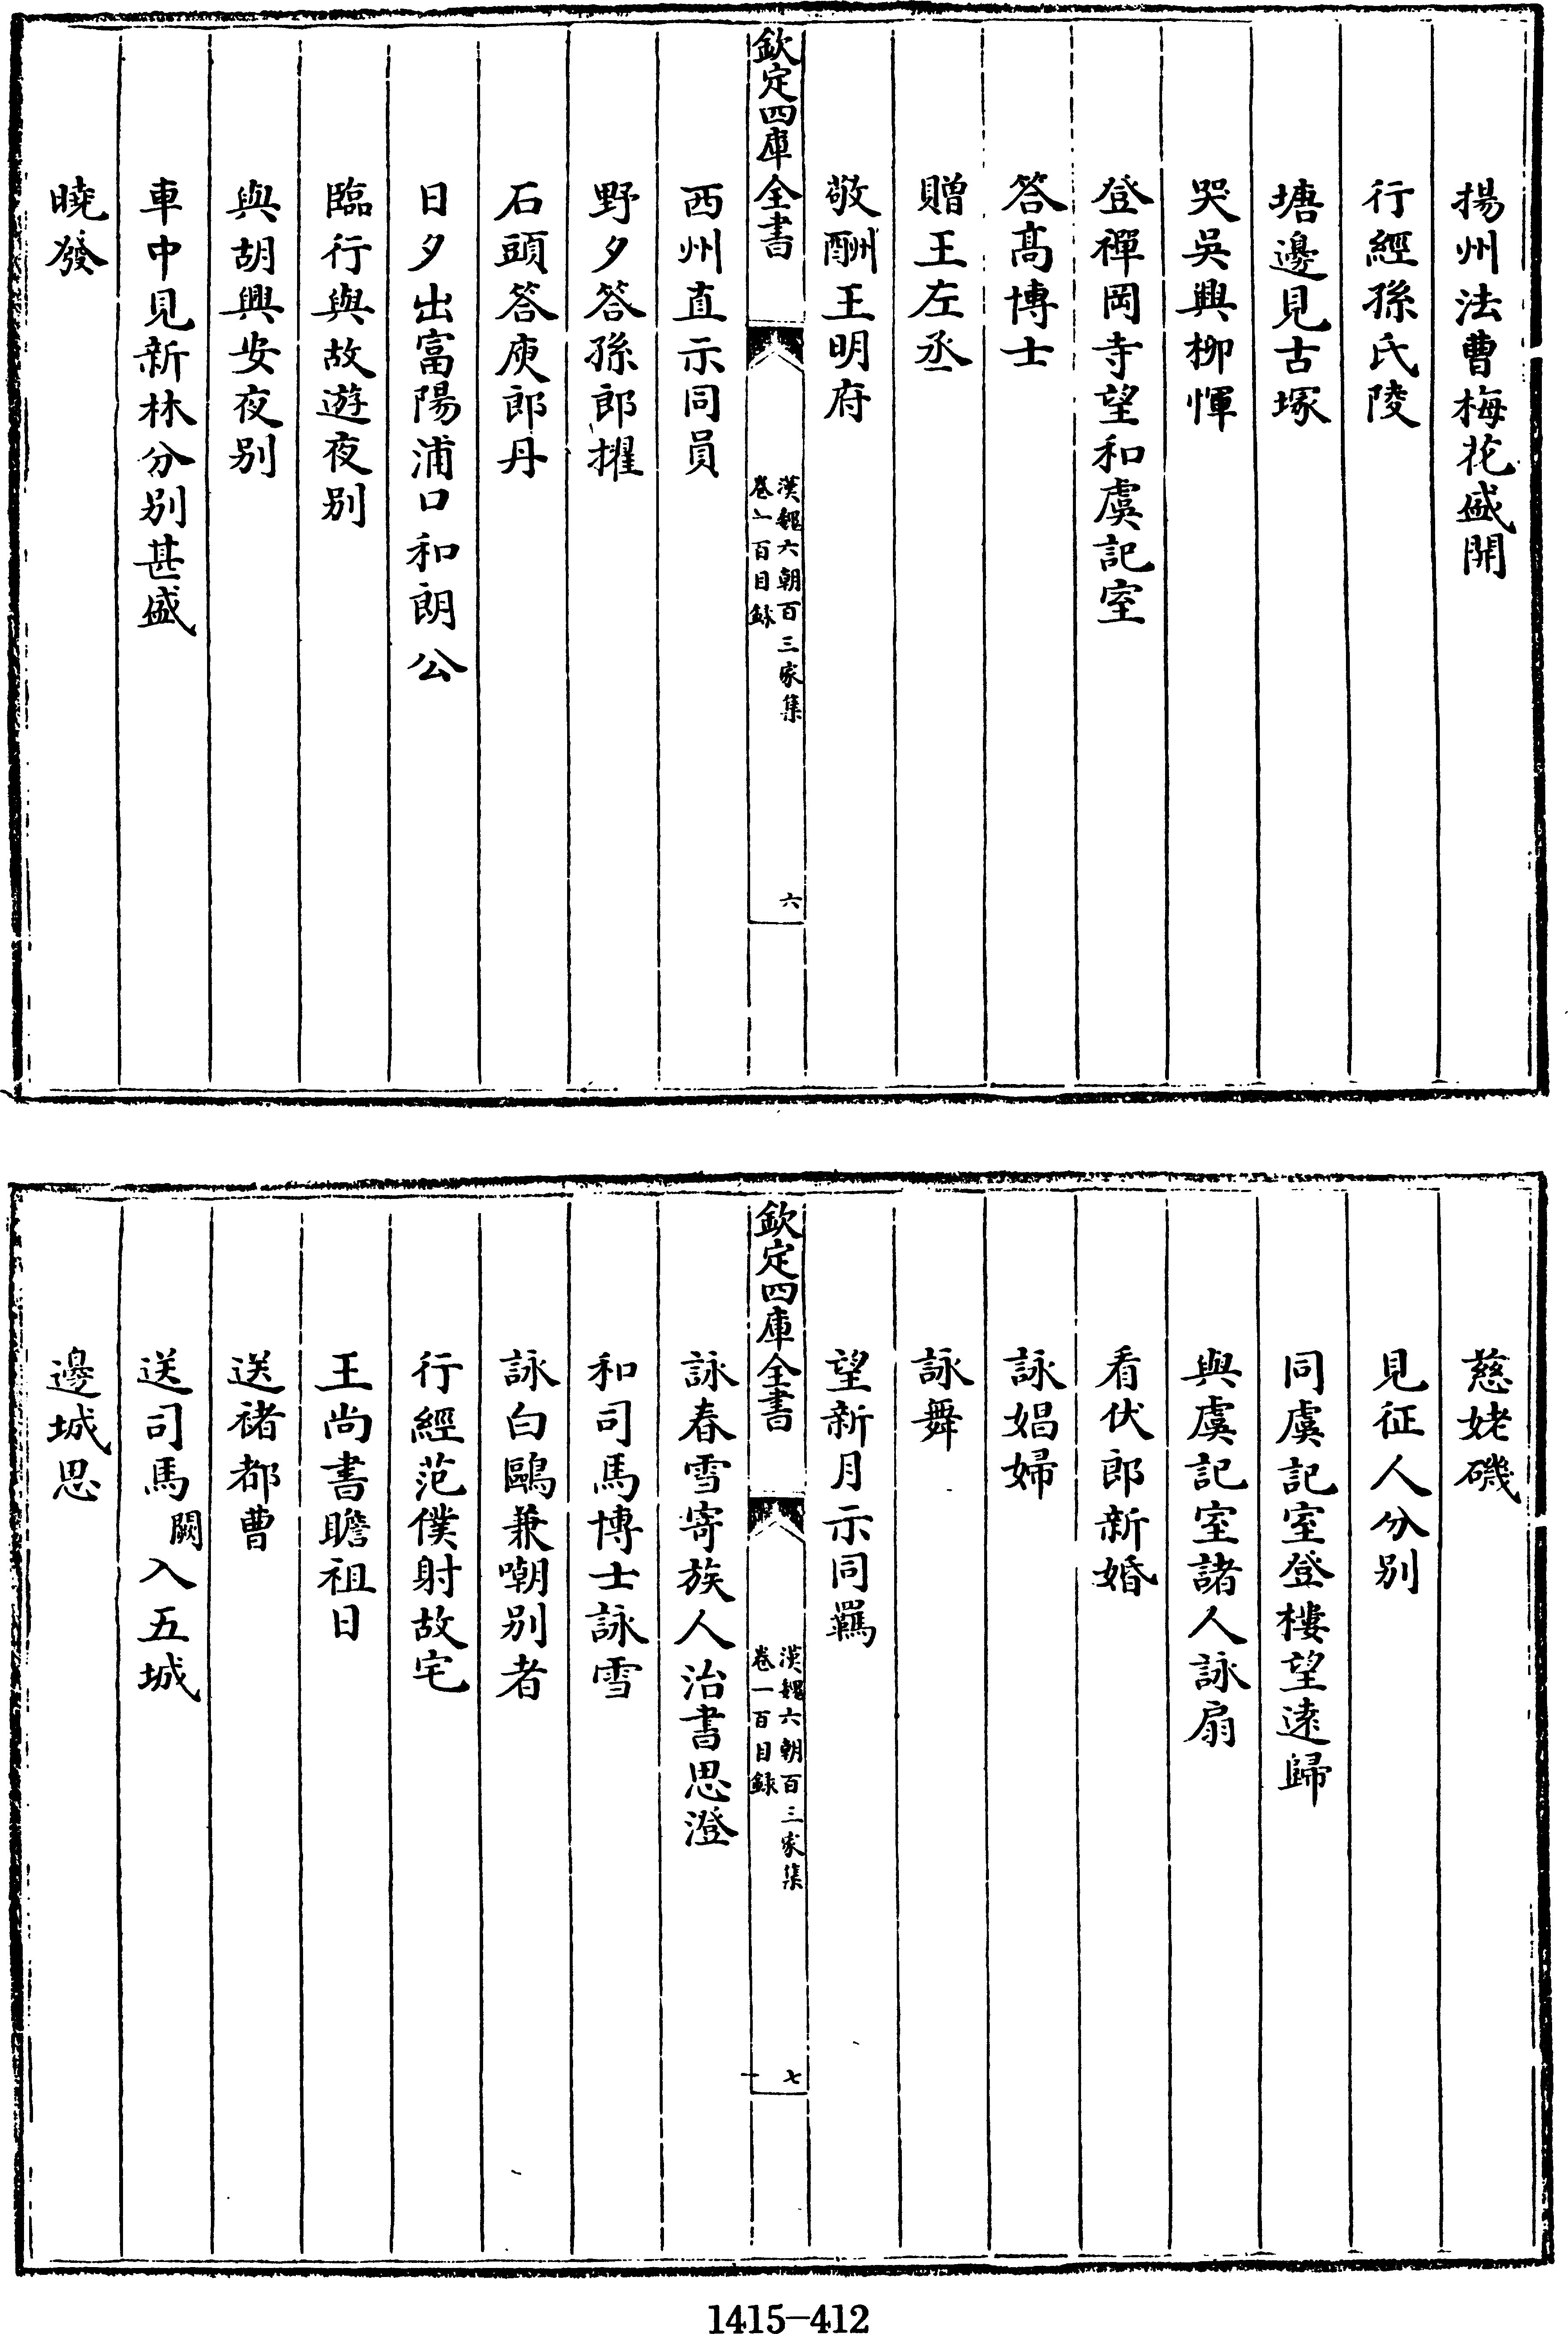 揚州法曹梅花盛開
行經孫氏陵
塘邊見古塚
哭吳興柳惲
登禪岡寺望和虞記室
答髙博士
贈王左丞
敬酬王明府
欽定四庫全書
漢魏六朝百三家集
卷一百目録
六
西州直示同員
野夕答孫郎擢
石頭答庾郎丹
日夕出富陽浦口和朗公
臨行與故遊夜别
與胡興安夜别
車中見新林分别甚盛
曉發
慈姥磯
見征人分别
同虞記室登樓望遠歸
與虞記室諸人詠扇
看伏郎新婚
詠娼婦
詠舞
望新月示同羈
欽定四庫全書
漢魏六朝百三家集
卷一百目録
七
詠春雪寄族人治書思澄
和司馬博士詠雪
詠白鷗兼嘲别者
行經范僕射故宅
王尚書瞻祖日
送禇都曹
送司馬闕入五城
邊城思
1415-412